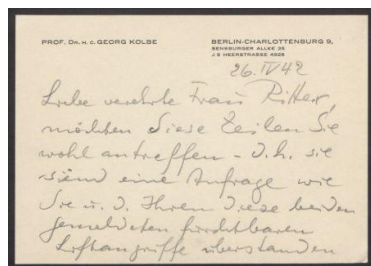 PROF. DR. H. C. GEORG KOLBE
BERLIN-CHARLOTTENBURG 9,
SENSBURGER ALLEE 26
J 9 HEERSTRASSE
26.IV 42
Liebe verehrte Frau Ritter,
möchten diese Zeilen Sie
wohl antreffen – d.h. sie
sind eine Anfrage wie
Sie u. d. Ihren diese beiden
gemeldeten furchtbaren
Luftangriffe überstanden